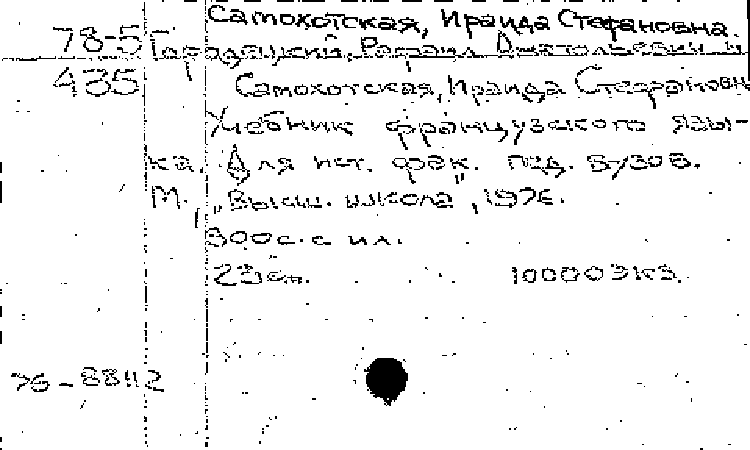 Самохотская, Ираида Стефановна.
78-5 Городецкий, Рафаил Анатольевич и
435 Самохотская, Ираида Стефановн
Учебник французского язы-
ка. Для ист. фак. пед. вузов.
М., „Высш. школа", 1976.
300с. с ил.
23см. 10000экз.
76-88112